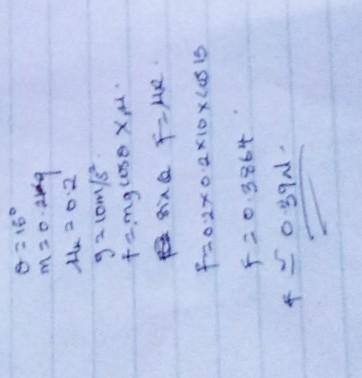 θ = 15°
m = 0.2kg
μk = 0.2
g = 10m/s².
f = mg cosθ × μ.
sinθ F = μR.
F = 0.2 × 0.2 × 10 × cos 15
F = 0.3864.
F ≃ 0.39N.